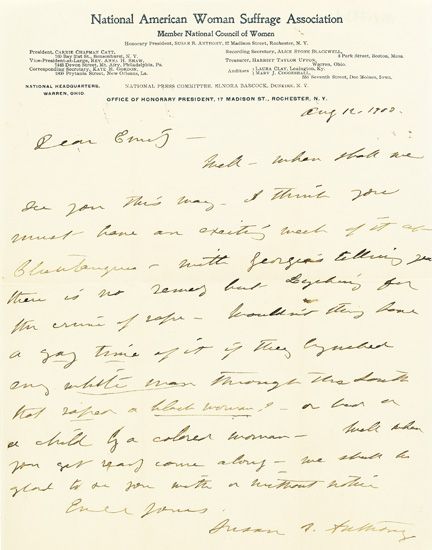 National American Woman Suffrage Association
Member National Council of Women
Honorary President, SUSAN B. ANTHONY, 17 Madison Street, Rochester, N. Y.
President, CARRIE CHAPMAN CATT,
Vice-President-at-Large, REV. ANNA H. SHAW,
Mt. Airy, Philadelphia, Pa.
Corresponding Secretary, KATE M. GORDON,
1800 Prytania Street, New Orleans, La.
Recording Secretary, ALICE STONE BLACKWELL,
3 Park Street, Boston, Mass.
Treasurer, HARRIET TAYLOR UPTON,
Warren, Ohio.
Auditors { LAURA CLAY, Lexington, Ky.
{ MARY J. COGGESHALL,
Seventh Street, Des Moines, Iowa.
NATIONAL HEADQUARTERS,
WARREN, OHIO.
NATIONAL PRESS COMMITTEE, ELNORA BABCOCK, DUNKIRK, N. Y.
OFFICE OF HONORARY PRESIDENT, 17 MADISON ST., ROCHESTER, N. Y.
Aug 12, 1903.
Dear Emily –
Well – when shall we
see you this way – I think you
must have an exciting week of it at
Chautauqua – with Georgia's telling you
there is no remedy but Lynching for
the crime of rape – Wouldn't they have
a gay time of it if they lynched
any white man through the South
that raped a black woman? – or had
a child by a colored woman – Well when
you get ready come along – we shall be
glad to see you with or without notice
Ever Yours
Susan B. Anthony